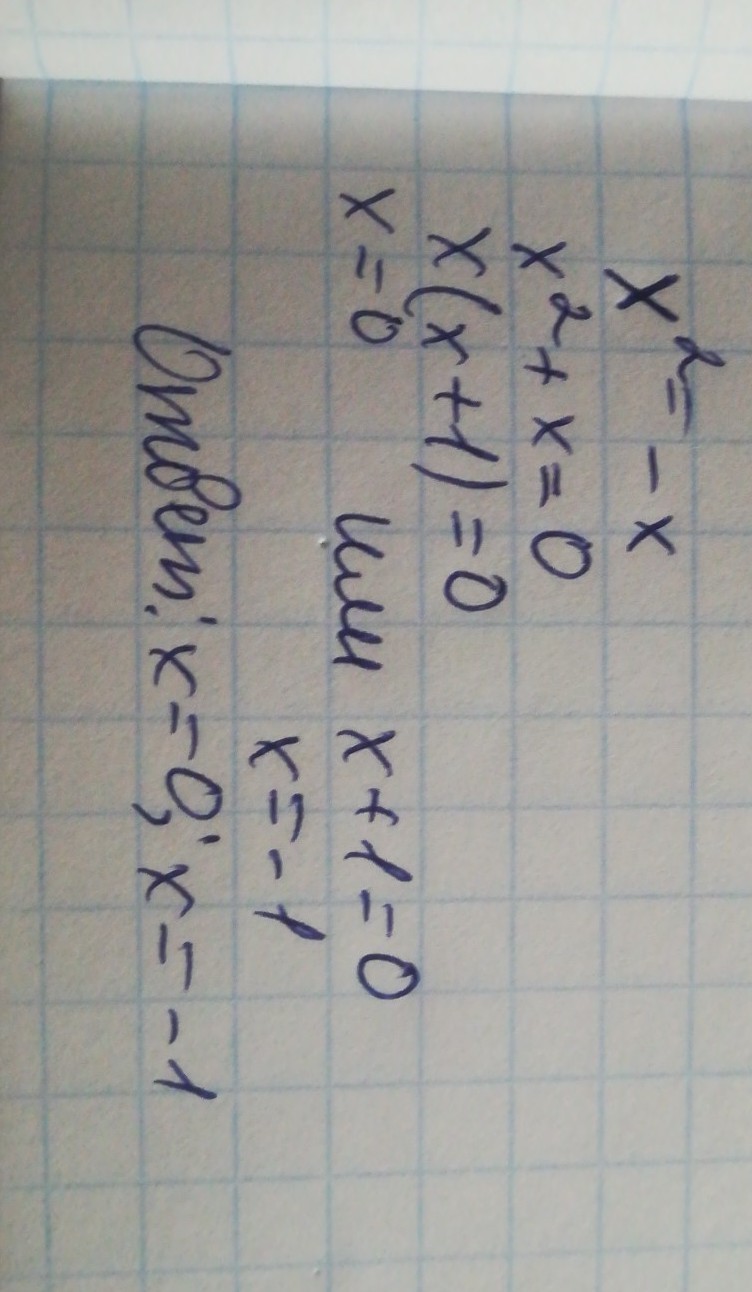 x² = -x
x² + x = 0
x(x+1) = 0
x = 0 или x+1 = 0
x = -1
Ответ: x = 0; x = -1